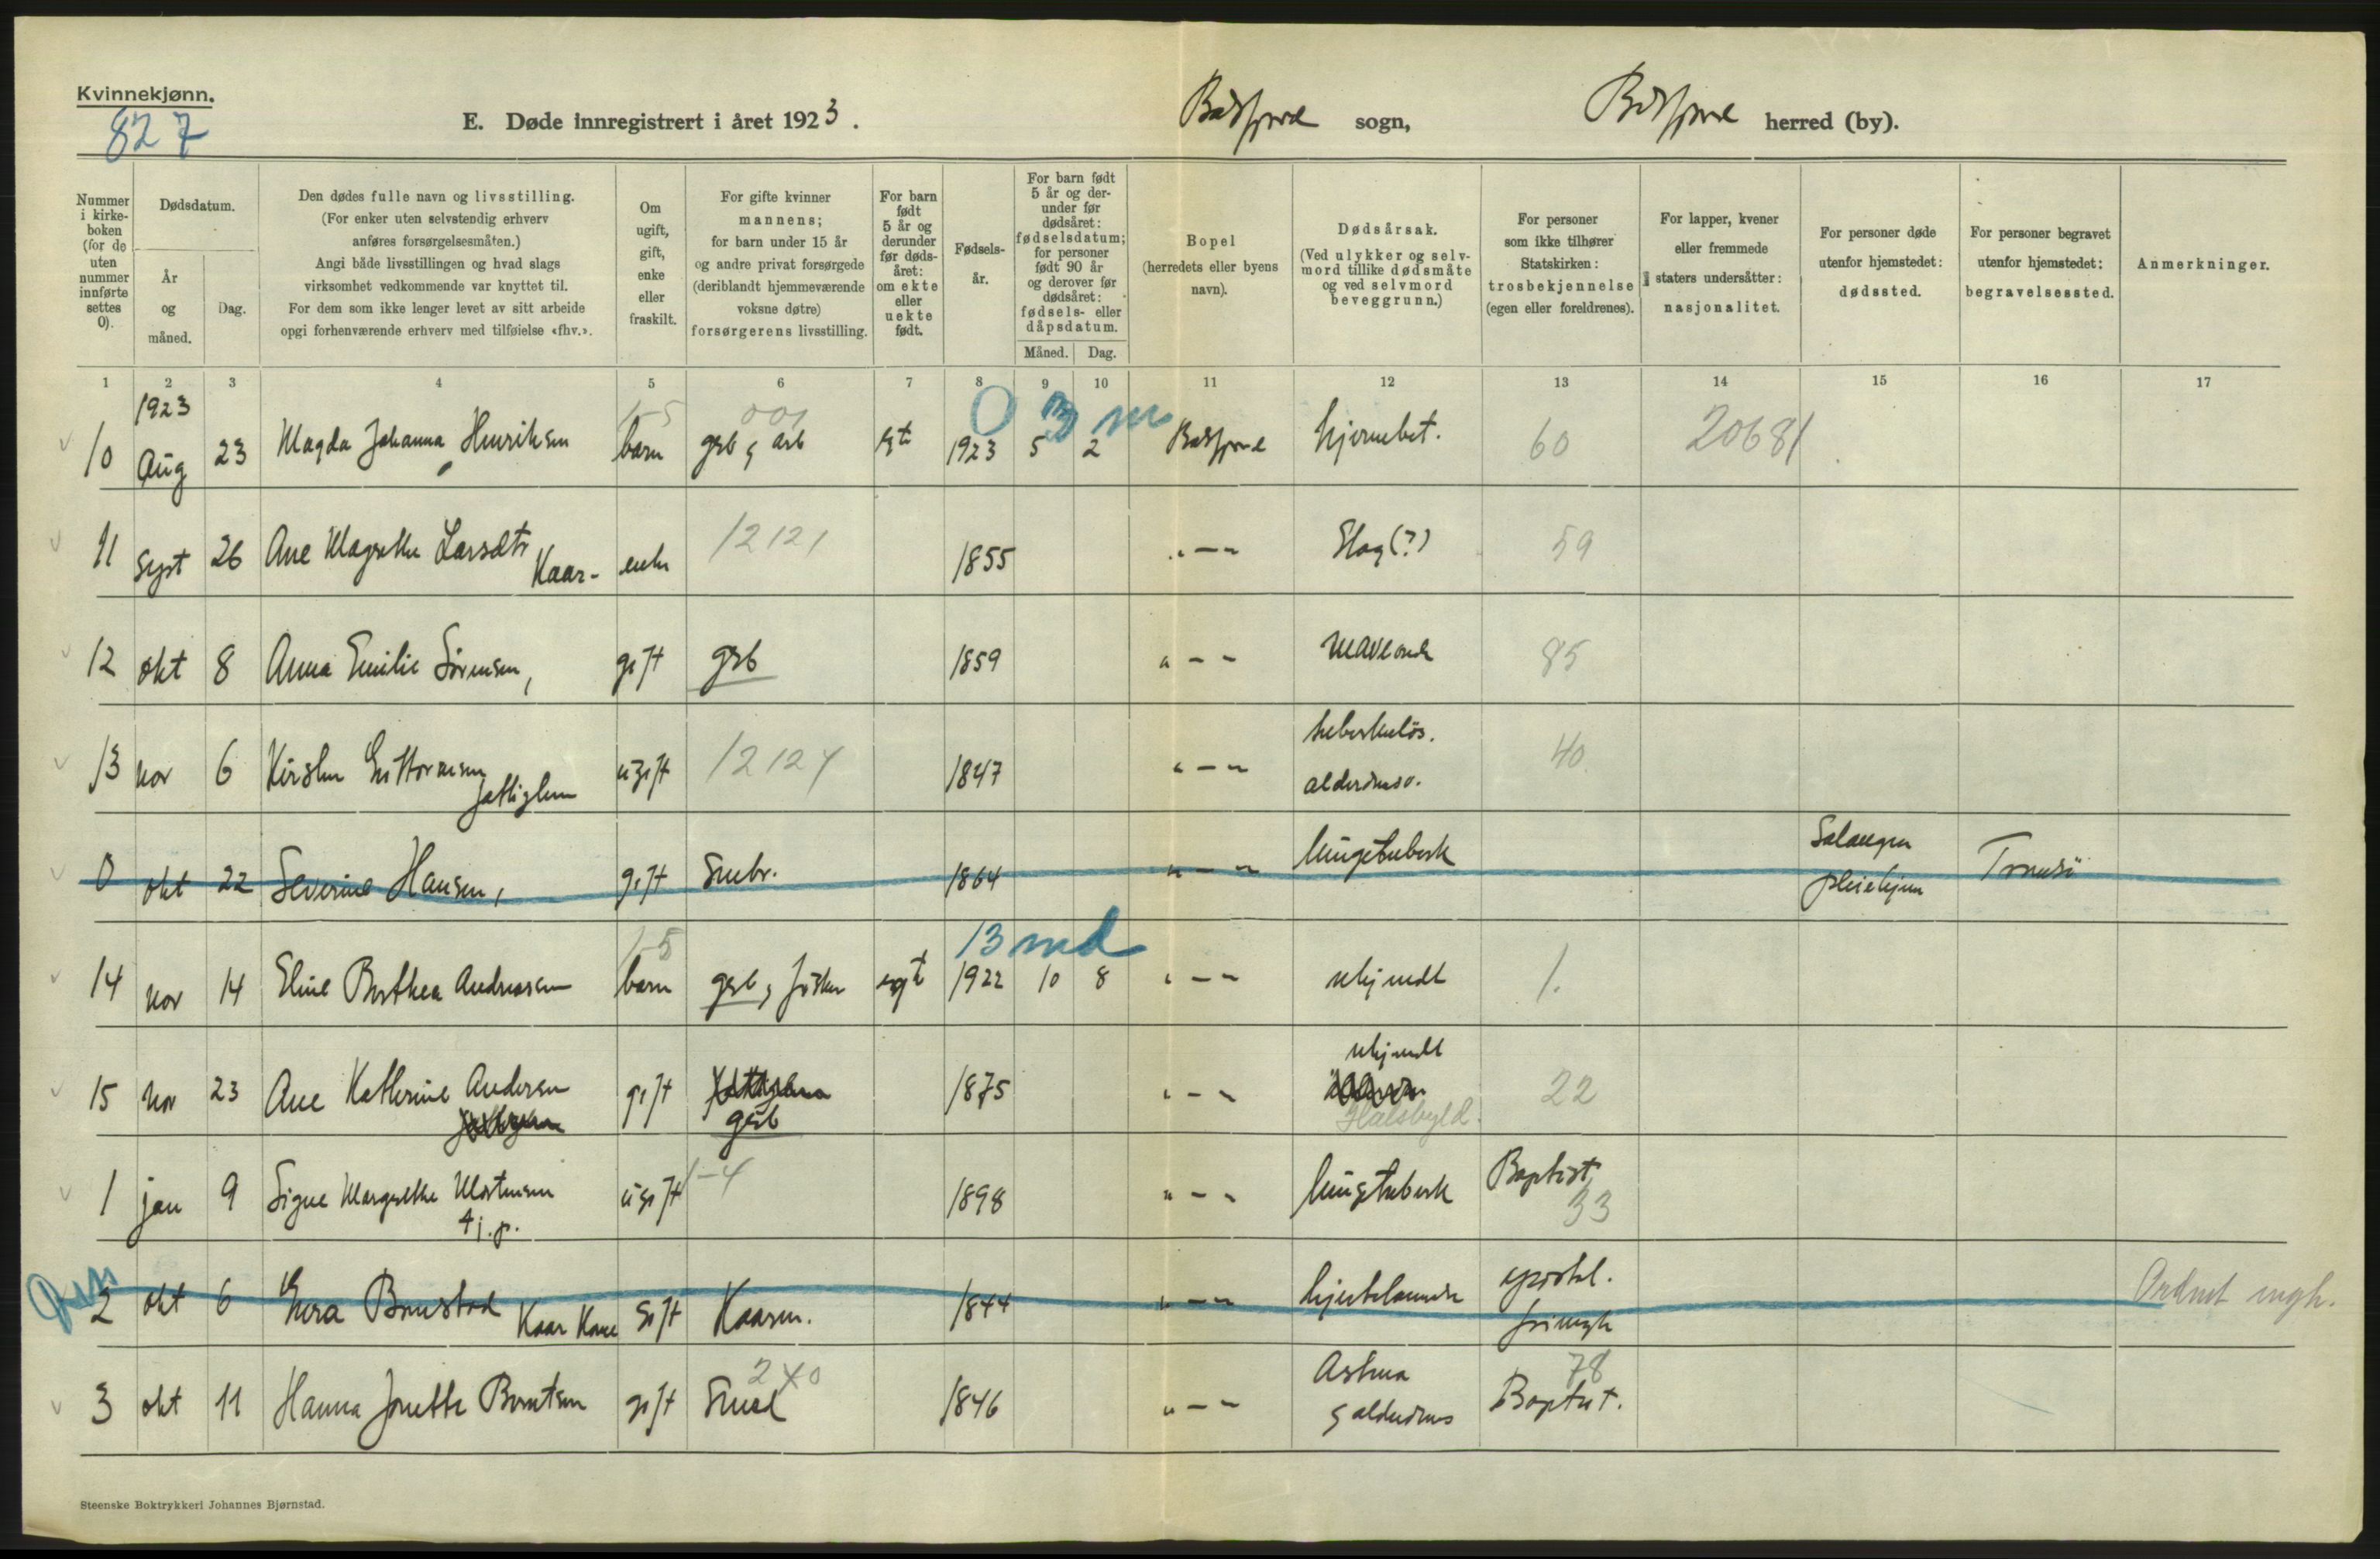 Kvinnekjønn.
827
E. Døde innregistrert i året 1923.
Balsfjord sogn,
Balsfjord herred (by).
Nummer
i kirke-
boken
(for de
uten
nummer
innførte
settes
0).
Dødsdatum.
År
og
måned.
Dag.
Den dødes fulle navn og livsstilling.
(For enker uten selvstendig erhverv
anføres forsørgelsesmåten.)
Angi både livsstillingen og hvad slags
virksomhet vedkommende var knyttet til.
For dem som ikke lenger levet av sitt arbeide
opgi forhenværende erhverv med tilføielse «fhv.».
Om
ugift,
gift,
enke
eller
fraskilt.
For gifte kvinner
mannens;
for barn under 15 år
og andre privat forsørgede
(deriblandt hjemmeværende
voksne døtre)
forsørgerens livsstilling.
For barn
født
5 år og
derunder
før døds-
året:
om ekte
eller
uekte
født.
Fødsels-
år.
For barn født
5 år og der-
under før
dødsåret:
fødselsdatum;
for personer
født 90 år
og derover før
dødsåret:
fødsels- eller
dåpsdatum.
Måned. Dag.
Bopel
(herredets eller byens
navn).
Dødsårsak.
(Ved ulykker og selv-
mord tillike dødsmåte
og ved selvmord
beveggrunn.)
For personer
som ikke tilhører
Statskirken:
trosbekjennelse
(egen eller foreldrenes).
For lapper, kvener
eller fremmede
staters undersåtter:
nasjonalitet.
For personer døde
utenfor hjemstedet:
dødssted.
For personer begravet
utenfor hjemstedet:
begravelsessted.
Anmerkninger.
1 2 3 4 5 6 7 8 9 10 11 12 13 14 15 16 17
1923 1-5 001 0 3 m
10 Aug 23 Magda Johanna Henriksen barn grb & arb egt 1923 5 2 Balsfjord hjernebet. 60 20681
11 Sept 26 Ane Magrethe Larsdtr enke 12121 1855 " - - Slag (?) 59
Kaar-
12 okt 8 Anna Emilie Sørensen, gift grb 1859 " - - maveonde 85
13 nov 6 Kirsten Guttormsen ugift 12124 1847 " - - tuberkulös. 40
fattiglem alderdomsv.
0 okt 22 Severine Hansen, gift Smbr. 1864 " - - lungetuberk Salangen Tromsö
pleiehjem
1-5 13 md
14 nov 14 Eline Berthea Andreasen barn grb, fisker egt 1922 10 8 " - - ukjendt 1.
15 nov 23 Ane Katherine Andersen gift 1875 " - - ukjendt 22
grb Halsbyld.
1 jan 9 Signe Margrethe Mortensen ugift 1-4 1898 " - - lungetuberk Baptist
4 j. p. 33
2 okt 6 Bomstad Kaar Kone gift Kaarm. 1844 " - - apostol.
frimgh Ordnet mgh.
3 okt 11 Hanna Jonette Berntsen gift Smed 240 1846 " - - Astma 78
& alderdoms Baptist.
Steenske Boktrykkeri Johannes Bjørnstad.